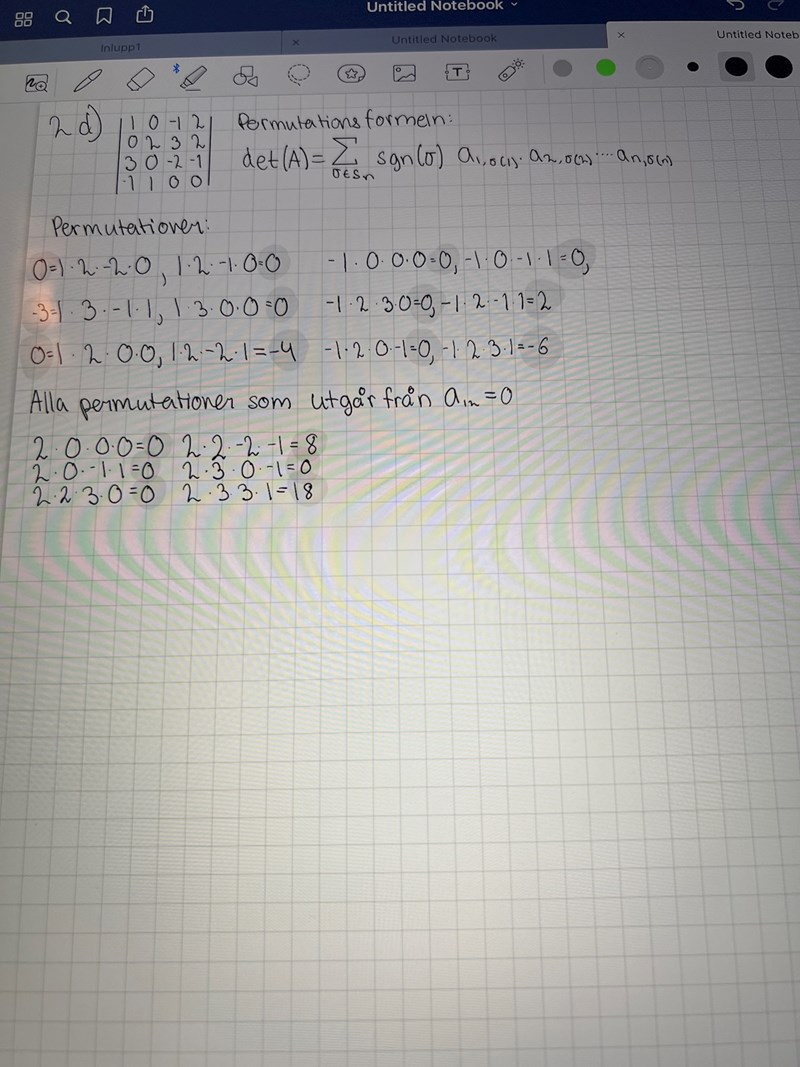 Untitled Notebook
Inlupp1
Untitled Notebook
Untitled Noteb
2d) |1 0 -1 2| Permutationsformeln:
|0 2 3 2|
|3 0 -2 -1| det(A)=∑ sgn(σ) a1,σ(1)·a2,σ(2)···an,σ(n)
σ∈Sn
|-1 1 0 0|
Permutationer:
0=1·2·-2·0, 1·2·-1·0=0 -1·0·0·0=0, -1·0·-1·1=0,
-3=1·3·-1·1, 1·3·0·0=0 -1·2·3·0=0, -1·2·-1·1=2
0=1·2·0·0, 1·2·-2·1=-4 -1·2·0·-1=0, -1·2·3·1=-6
Alla permutationer som utgår från a12=0
2·0·0·0=0 2·2·-2·-1=8
2·0·-1·1=0 2·3·0·-1=0
2·2·3·0=0 2·3·3·1=18